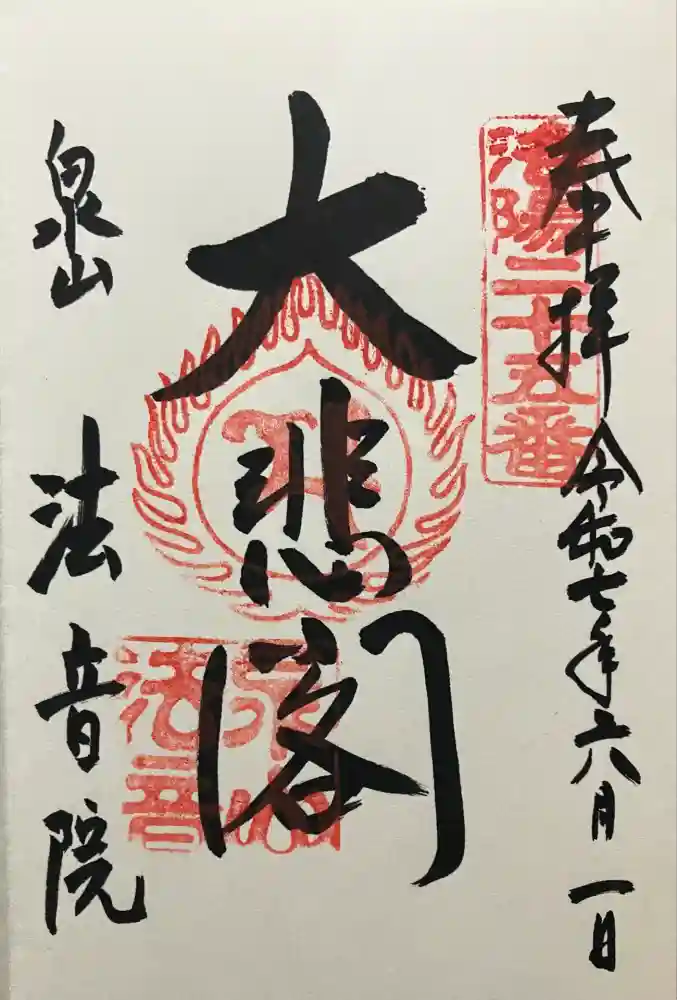 奉拝 令和七年六月一日
洛陽二十五番
大悲閣
泉山
法音
泉山 法音院